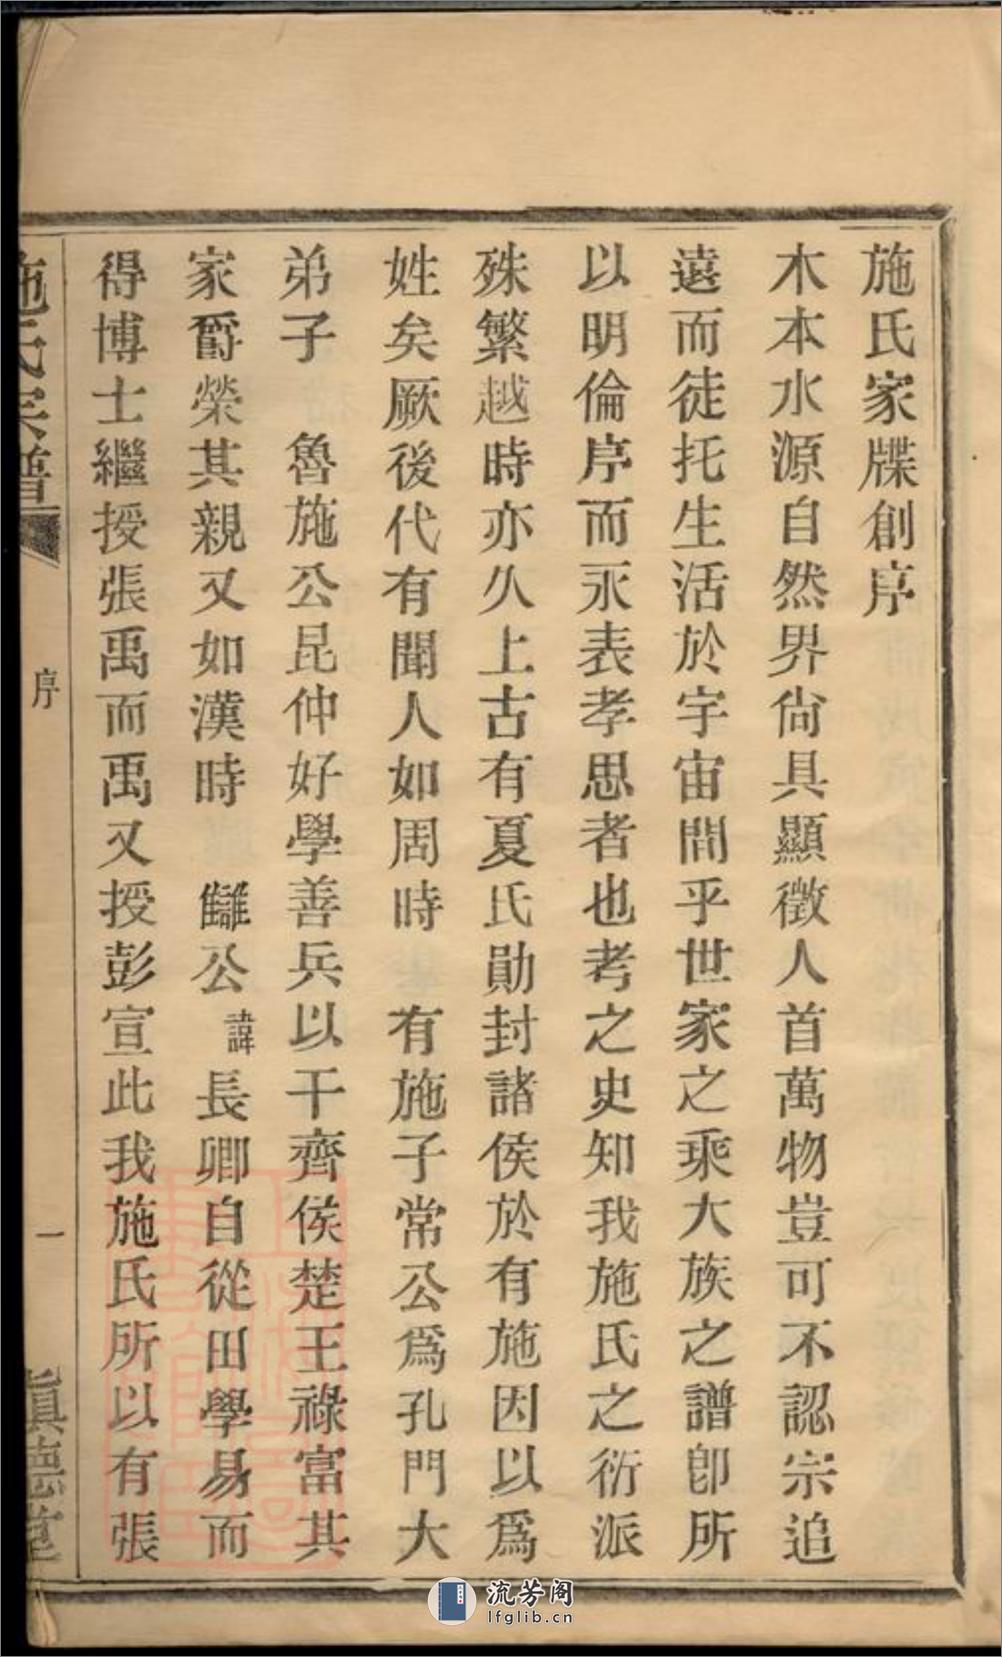 施氏家牒創序
木本水源自然界尙具顯徵人首萬物豈可不認宗追
遠而徒托生活於宇宙間乎世家之乘大族之譜卽所
以明倫序而永表孝思者也考之史知我施氏之衍派
殊繁越時亦久上古有夏氏勛封諸侯於有施因以爲
姓矣厥後代有聞人如周時 有施子常公爲孔門大
弟子 魯施公昆仲好學善兵以干齊侯楚王祿富其
家爵榮其親又如漢時 讎公諱長卿自從田學易而
得博士繼授張禹而禹又授彭宣此我施氏所以有張
施氏宗譜
序
一
眞德堂
流芳阁
lfglib.cn